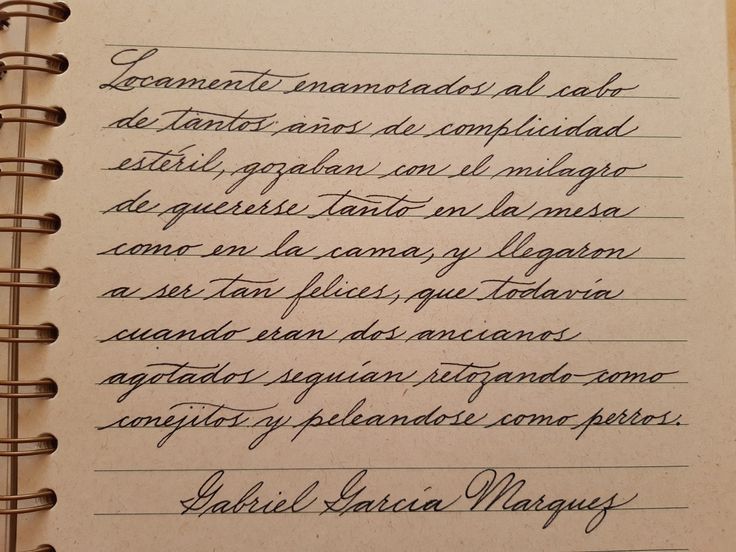 Locamente enamorados al cabo
de tantos años de complicidad
estéril, gozaban con el milagro
de quererse tanto en la mesa
como en la cama, y llegaron
a ser tan felices, que todavía
cuando eran dos ancianos
agotados seguían retozando como
conejitos y peleandose como perros.
Gabriel García Marquez